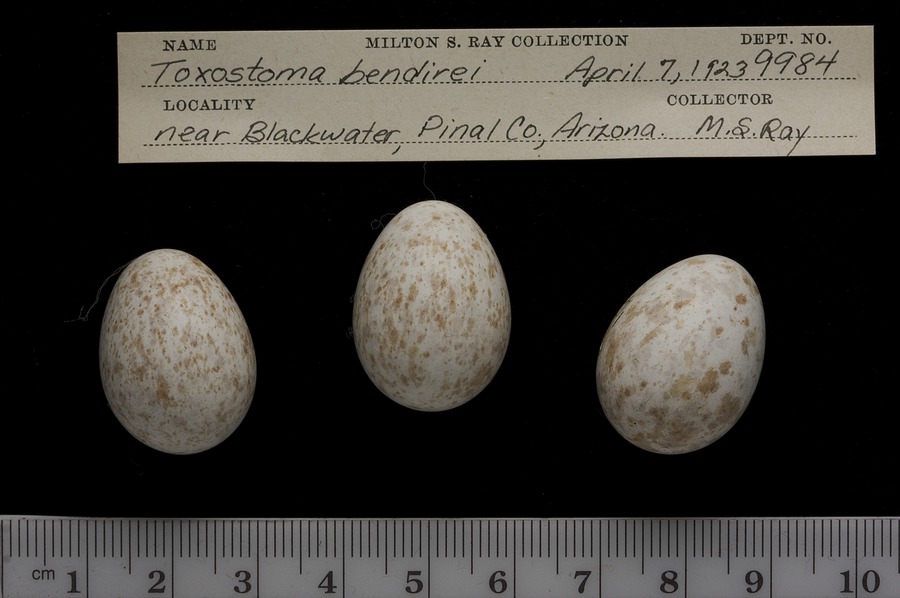 NAME MILTON S. RAY COLLECTION DEPT. NO.
Toxostoma bendirei April 7, 1923 9984
LOCALITY COLLECTOR
near Blackwater, Pinal Co., Arizona. M.S. Ray
cm 1 2 3 4 5 6 7 8 9 10